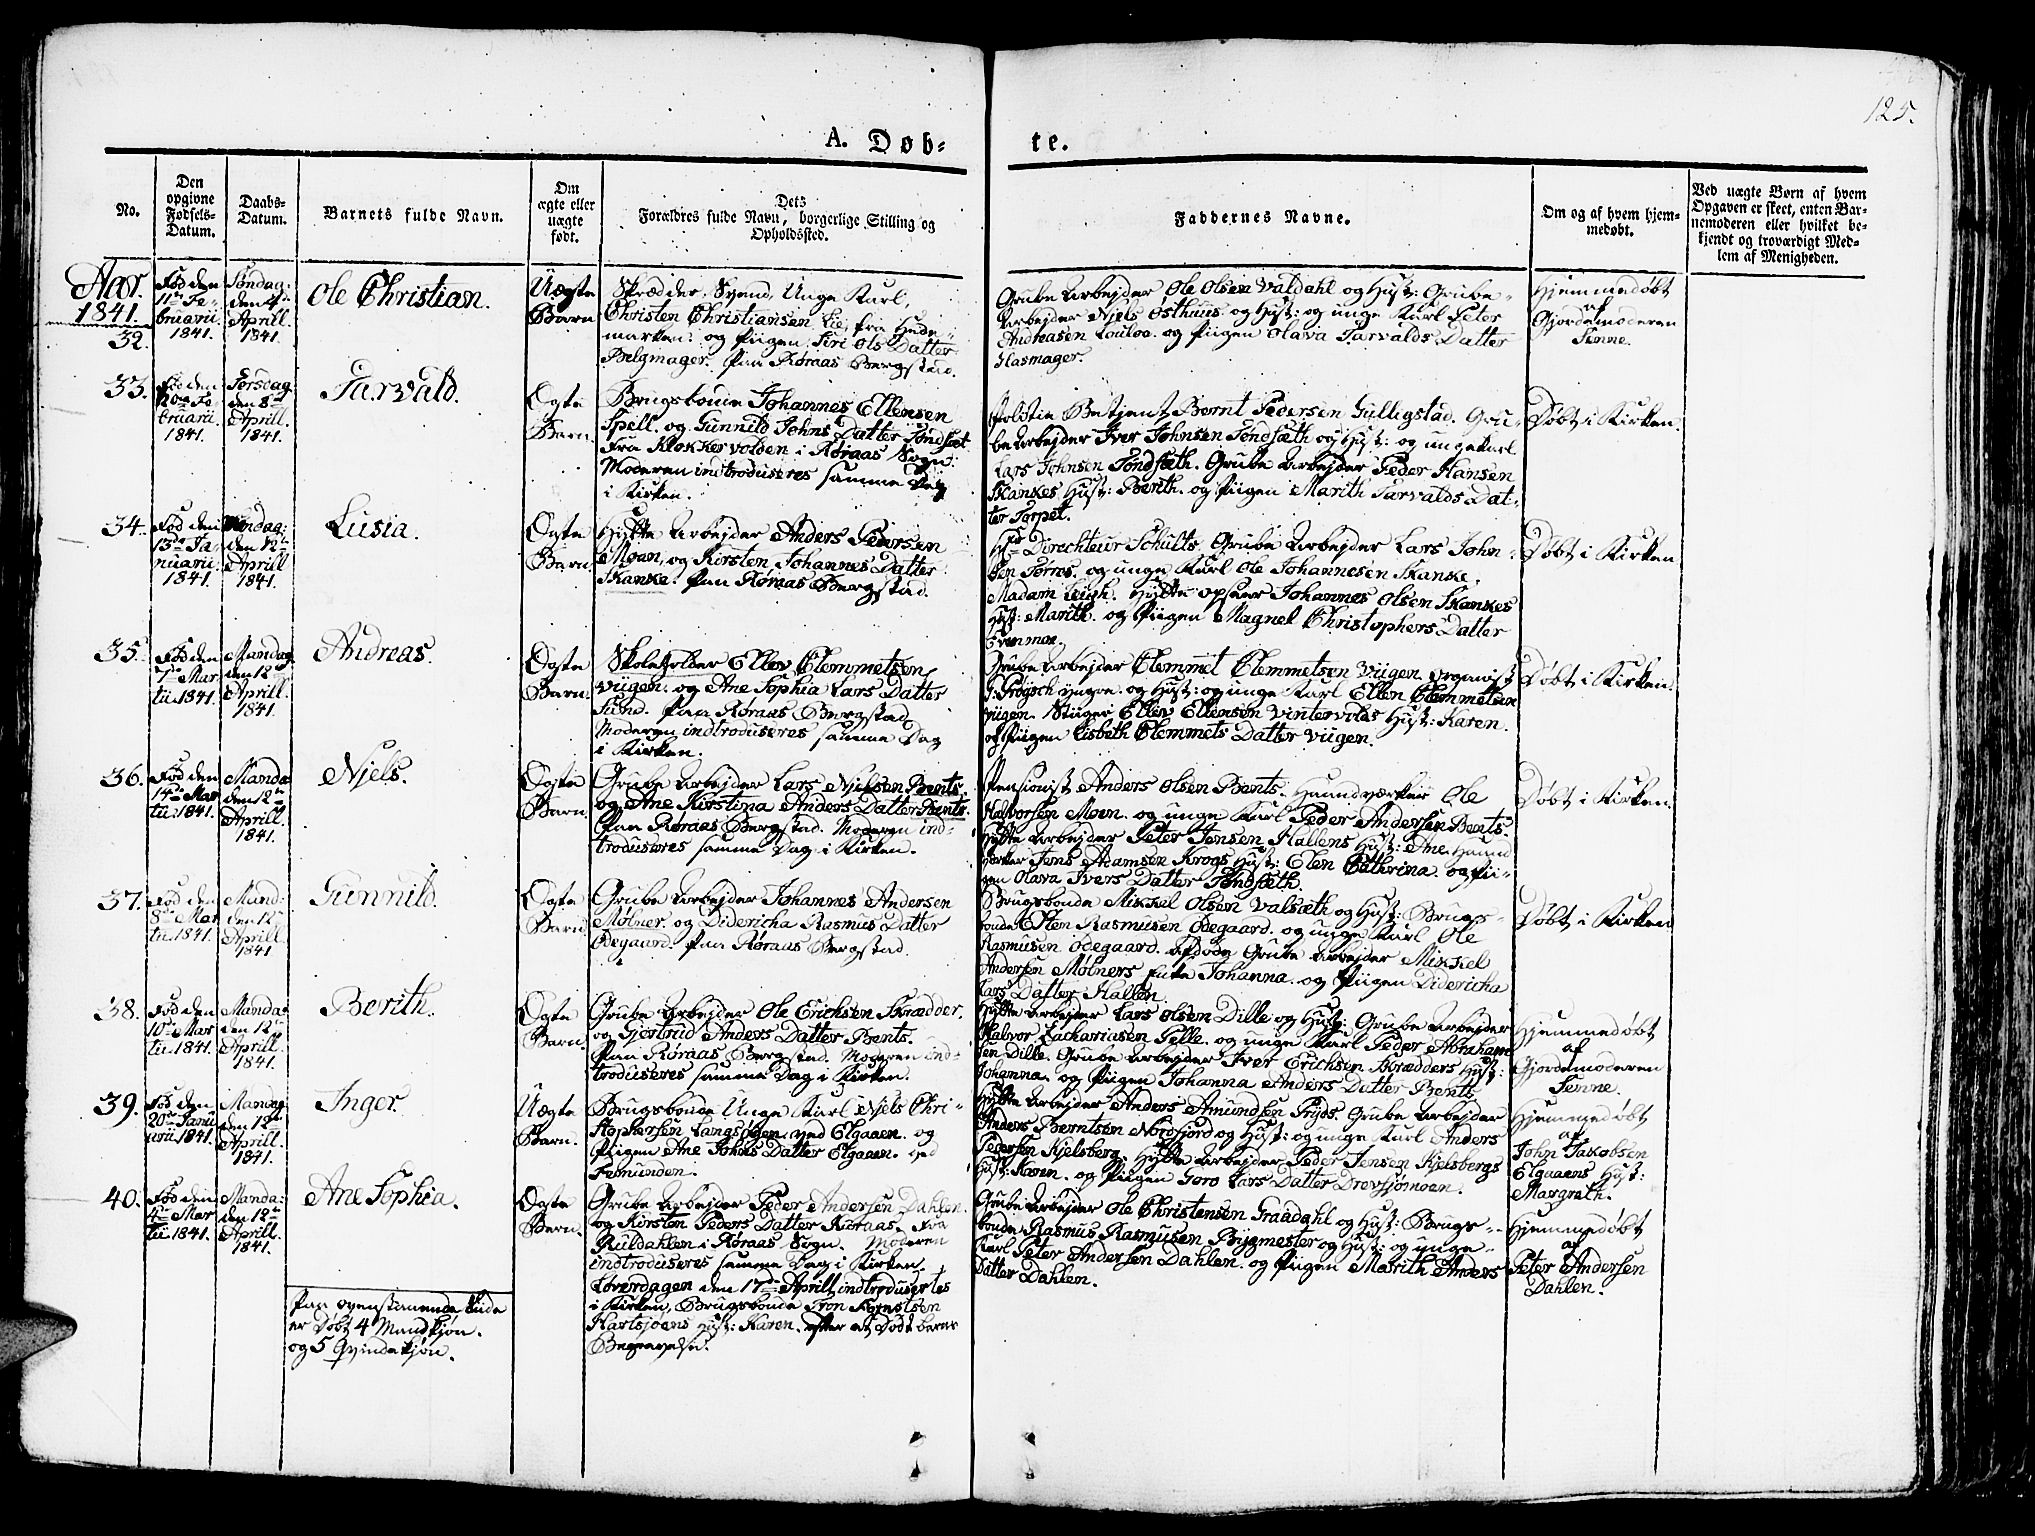 125.
A. Døb-
te.
No.
Den
opgivne
Fødsels-
Datum.
Daabs-
Datum.
Barnets fulde Navn.
Om
ægte eller
uægte
født.
Dets
Forældres fulde Navn, borgerlige Stilling og
Opholdssted.
Faddernes Navne.
Om og af hvem hjem-
medøbt.
Ved uægte Børn af hvem
Opgaven er skeet, enten Bar-
nemoderen eller hvilket be-
kjendt og troværdigt Med-
lem af Menigheden.
Aar.
1841.
32.
Fød den
11te Fe-
bruarii
1841.
Søndag:
den 4de
Aprill
1841.
Ole Christian.
Uægte
Barn
Skrædder Svend, Unge Karl,
Christen Christiansen Lie, fra Hede-
marken: og Piigen Siri Ols Datter
Belgmager. Paa Røraas Bergstad.
Grube Arbejder Ole Olsen Valdahl og Hust: Grube-
Arbejder Njels Østhuus og Hust: og unge Karl Peter
Andreasen Louloe. og Piigen Olava Tarvalds Datter
Hasmager.
Hjemmedøbt
af
Gjordemoderen
Tenne.
33.
Fød den
20de Fe
bruarii
1841.
Torsdag
den 8de
Aprill.
1841.
Tarvald.
Ægte
Barn.
Brugsbonde Johannes Ellensen
Spell. og Gunnild Johns Datter Tøndsæt
Fra Klokkervolden i Røraas Sogn.
Moderen indtroduseres samme Dag
i Kirken.
Politie Betjent Bernt Pedersen Gulligstad. Gru-
be Arbejder Iver Johnsen Tøndsæth og Hust: og ungekarl
Lars Johnsen Tøndsæth. Grube Arbejder Peder Hansen
Skankes Hust: Berith. og Piigen Marith Tarvalds Dat-
ter Torpet.
Døbt i Kirken.
34.
Fød den
13de Ja-
nuarii
1841.
Mandag:
den 12te
Aprill
1841.
Lusia.
Ægte
Barn.
Hytte Arbejder Anders Peersen
Moan, og Kirsten Johannes Datter
Skanke. Paa Røraas Bergstad.
Hr Direchteur Schults. Grube Arbejder Lars John-
sen Torres. og unge Karl Ole Johannesen Skanke.
Madam Leigh. Hytte opseer Johannes Olsen Skankes
Hust: Marith. og Piigen Magnel Christophers Datter
Evenmoe.
Døbt i Kirken
35.
Fød den
7de Mar
tii 1841.
Mandag
den 12te
Aprill.
1841.
Andreas.
Ægte
Barn.
Skoleholder Ellev Clemmetsen
Viigen. og Ane Sophia Lars Datter
Sund. Paa Røraas Bergstad
Moderen indtroduseres samme Dag
i Kirken.
Grube Arbejder Clemmet Clemmetsen Viigen. Organist
P. Prøysch yngre. og Hust: og unge Karl Ellen Clemmetsen
Viigen. Stiiger Ellev Ellensen Vintervolds Hust: Karen.
og Piigen Lisbeth Clemmets Datter Viigen.
Døbt i Kirken.
36.
Fød den
14de Mar
tii 1841.
Manda
den 12te
Aprill.
1841.
Njels.
Ægte
Barn
Grube Arbejder Lars Njelsen Bents.
og Ane Kirstina Anders Datter Bents.
Paa Røraas Bergstad. Moderen ind-
troduseres samme Dag i Kirken.
Pensionist Anders Olsen Bents. Haandværker Ole
Halvorsen Moen. og unge Karl Peder Andersen Bents.
Hytte Arbejder Peter Jensen Hallens Hust: Ane. Haand
værker Jens Adamsen Krogs Hust: Elen Cathrina. og Pii-
gen Olava Ivers Datter Tøndsæth.
Døbt i Kirken.
37.
Fød den
8de Mar
tii 1841.
Mand:
den 12te
Aprill.
1841
Gunnild.
Ægte
Barn
Grube Arbejder Johannes Andersen
Mølner. og Didericha Rasmus Datter
Ødegaard. Paa Røraas Bergstad.
Brugsbonde Mikkel Olsen Valsæth og Hust: Brugs-
bonde Esten Rasmusen Ødegaard. og unge Karl Ole
Rasmusen Ødegaard. Afdøde Grube Arbejder Mikkel
Andersen Mølners Enke Johanna. og Piigen Didericha
Lars Datter Hallen.
Døbt i Kirken
38.
Fød den
10de Mar
tii 1841.
Mandag
den 12te
Aprill.
1841.
Berith.
Ægte
Barn.
Grube Arbejder Ole Erichsen Skrædder.
og Gjertrud Anders Datter Bents.
Paa Røraas Bergstad. Moderen ind-
troduseres samme Dag i Kirken.
Hytte Arbejder Lars Olsen Dille og Hust: Grube Arbejder
Halvor Zachariasen Pelle. og unge Karl Peder Abraham
sen Dille. Grube Arbejder Iver Erichsen Skrædders Hust:
Johanna. og Piigen Johanna Anders Datter Bents.
Hjemmedøbt
af
Gjordemoderen
Tenne.
39.
Fød den
20de Janu
arii 1841.
Mandag
den 12te
Aprill.
1841.
Inger.
Uægte
Barn.
Brugsbonde Unge Karl Njels Chri-
stophersen Langsøen, ved Elgaaen. og
Piigen Ane Johns Datter Elgaaen. ved
Fæmunden.
Hytte Arbejder Anders Amundsen Pryds. Grube Arbejder
Anders Berntsen Nordfjord og Hust: og unge Karl Anders
Pedersen Kjelsberg. Hytte Arbejder Peder Jensen Kjelsbergs
Hust: Karen. og Piigen Goro Lars Datter Drevsjømoen.
Hjemmedøbt
af
John Jakobsen
Elgaaens Hust:
Margreth.
40.
Fød den
4de Mar
tii 1841.
Manda:
den 12te
Aprill.
1841.
Ane Sophia.
Ægte
Barn.
Grube Arbejder Peder Andersen Dahlen
og Kirsten Peders Datter Røraas. Fra
Ruldahlen i Røraas Sogn. Moderen
indtroduseres samme Dag i Kirken.
Løverdagen den 17de Aprill indtroduseretes
i Kirken, Brugsbonde Tron Tronstsen
Hartsjøens Hust: Karen. efter et Død Barns
Begravelse.
Grube Arbejder Ole Christensen Graadahl og Hust: Brugs-
bonde Rasmus Rasmusen Bygmester og Hust: og unge
Karl Peter Andersen Dahlen. og Piigen Marith Anders
Datter Dahlen.
Hjemmedøbt
af
Peter Andersen
Dahlen.
Paa ovenstaaende Side
er Døbt 4 Mandkjøn.
og 5 Qvindekjøn.